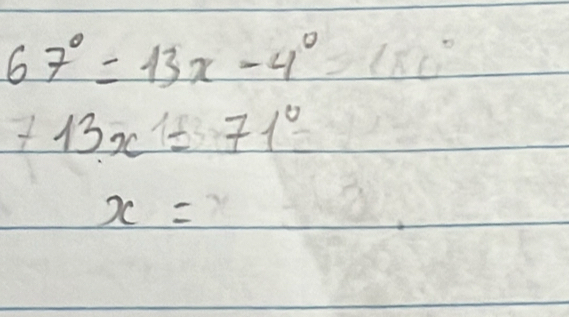 67° = 13x - 4°
13x = 71°
x =